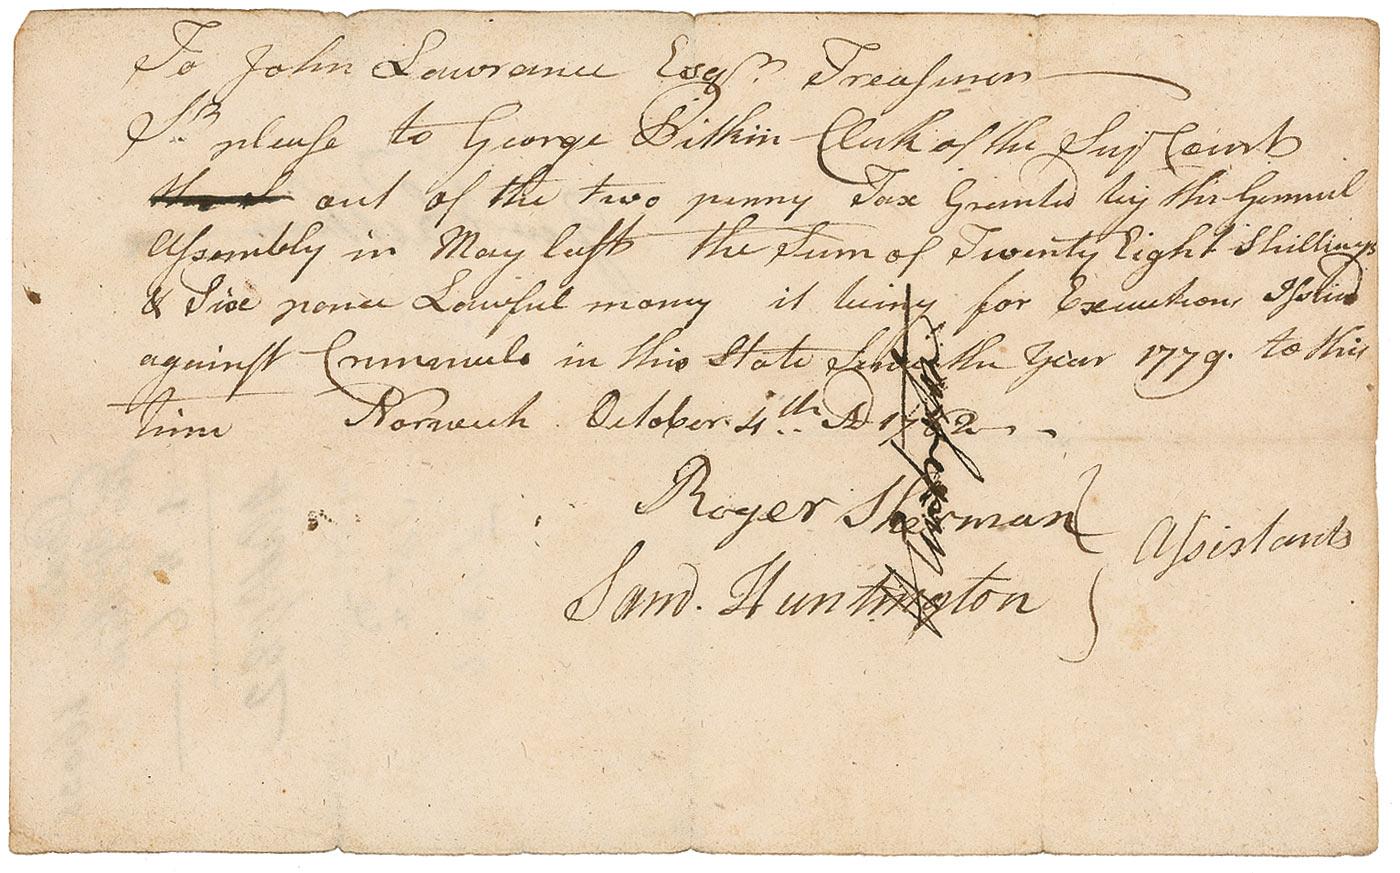 To John Lawrance Esqr. Treasurer
Sr. please to George Pitkin Clerk of the Supr Court
out of the two penny Tax Granted by the General
Assembly in May last the Sum of Twenty Eight Shillings
& Six pence Lawful money it being for Executions Issued
against Criminals in this State Since the Year 1779. to this
time Norwich October 4th. AD 1782
Roger Sherman
Assistants
Saml. Huntington